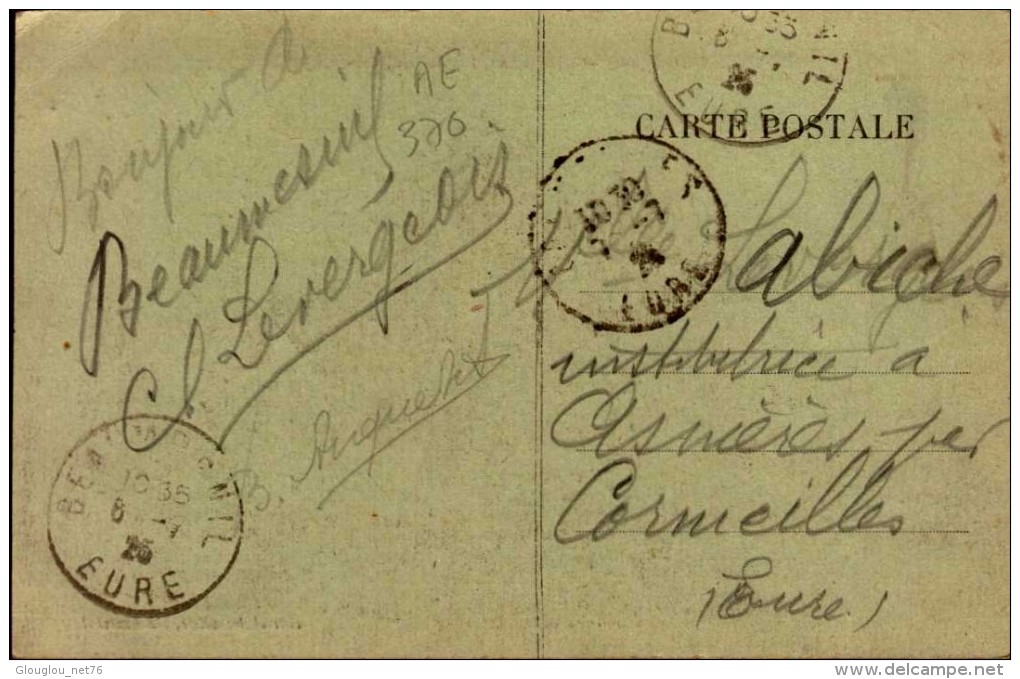 Bonjour de
Beaumesnil
Cl. Levergeois
B. Anquetil
AE
376
BEAUMESNIL
10 35
8 -7
25
EURE
10 35
8 -7
25
EURE
CARTE POSTALE
10 30
-7
EURE
Mlle Labiche
institutrice a
Asnières par
Cormeilles
(Eure)
Glouglou_net76
www.delcampe.net